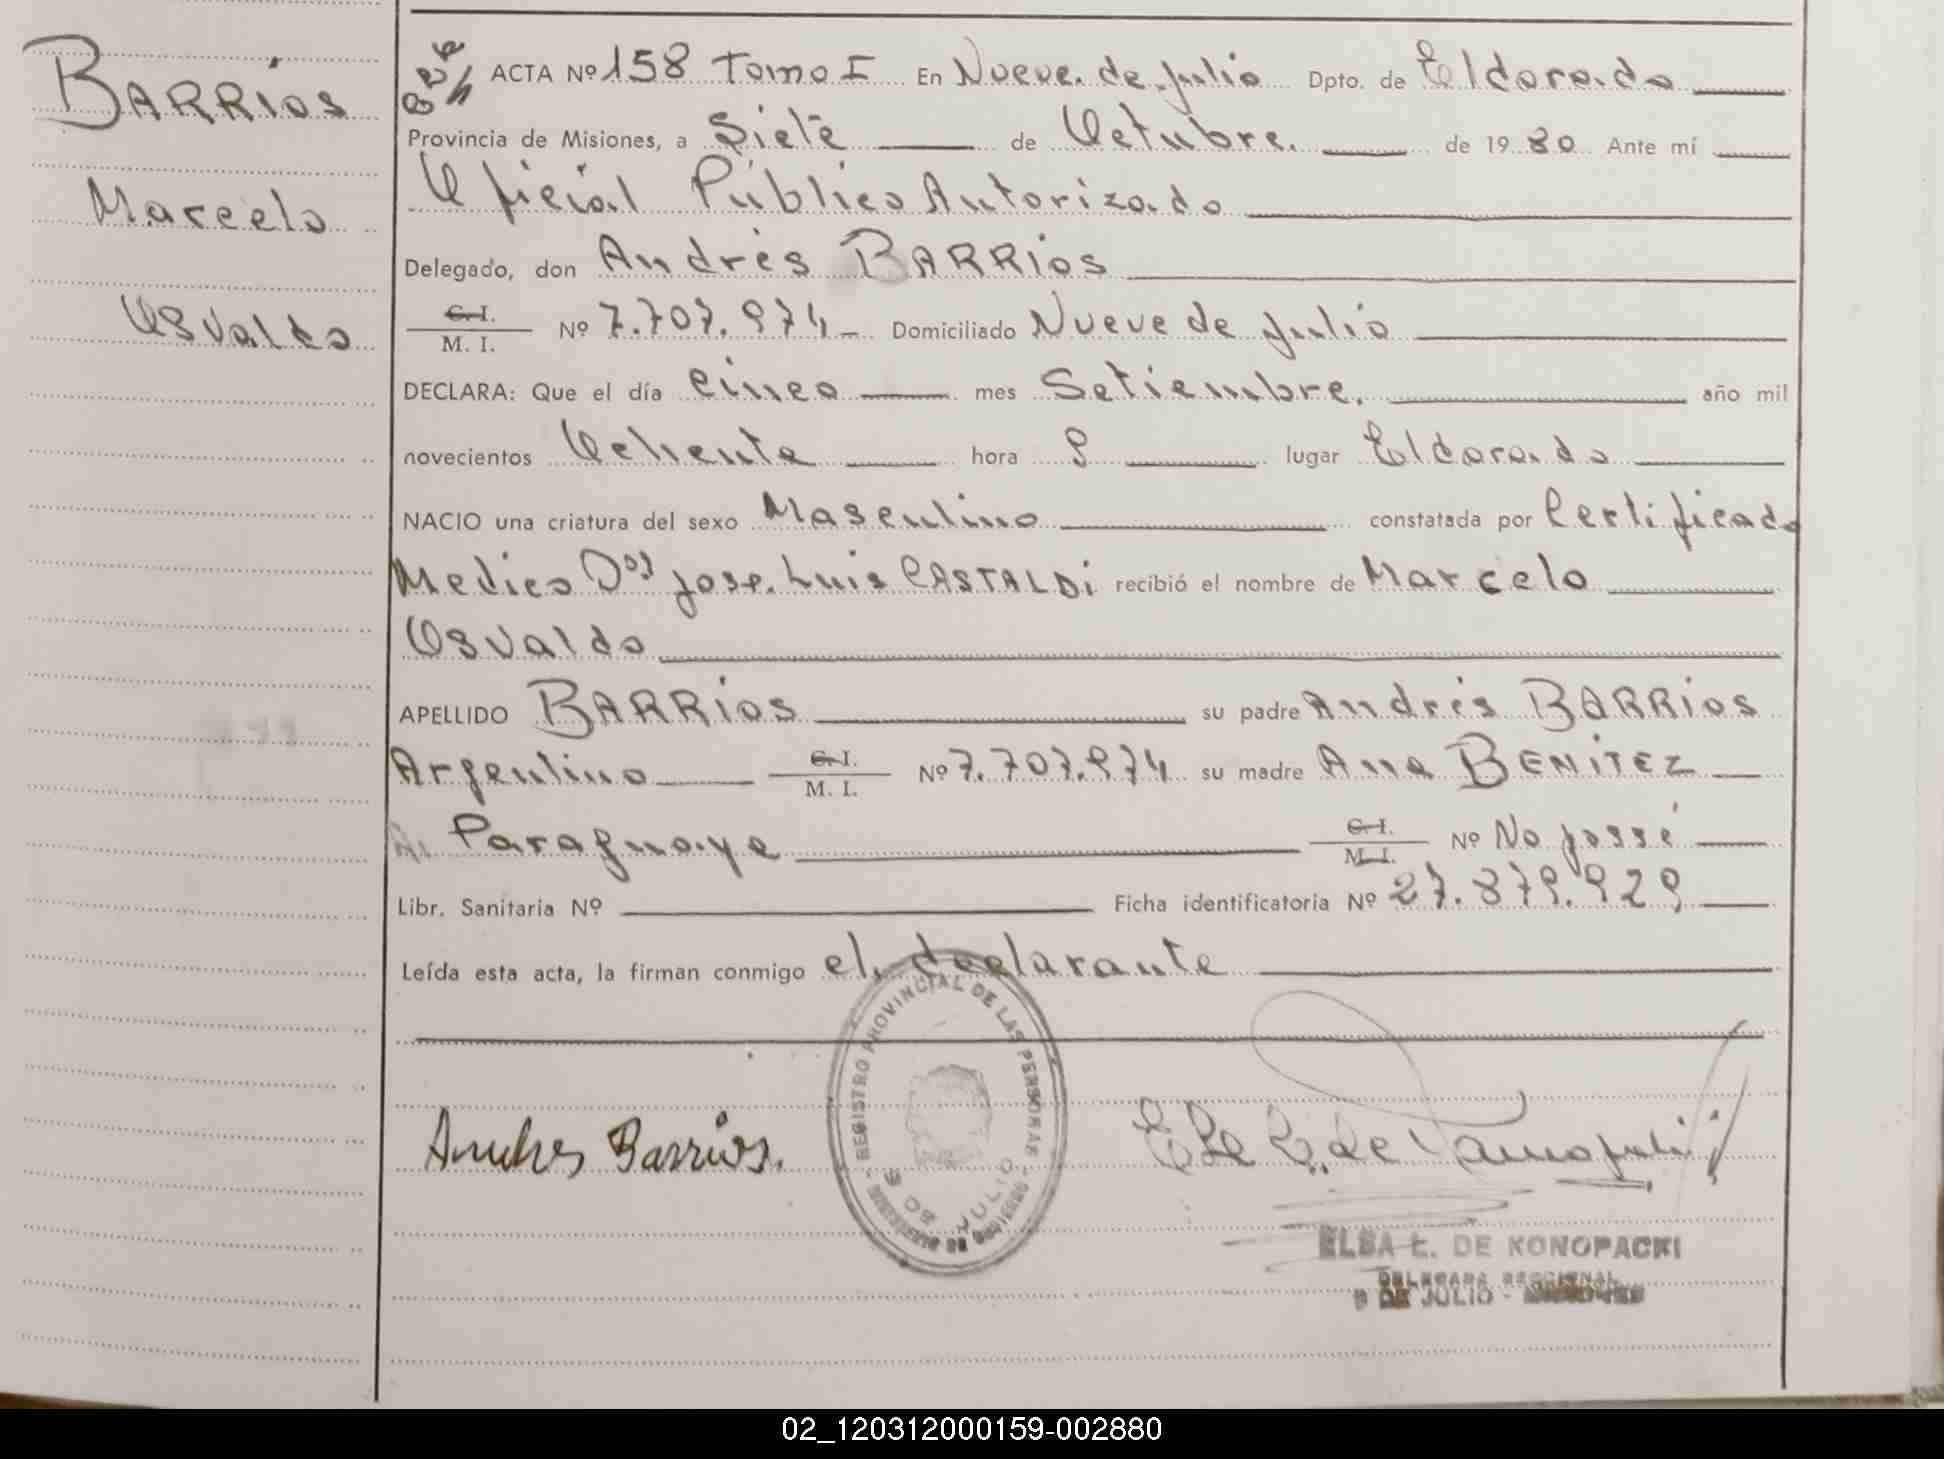 BARRios
Marcelo
Osvaldo
ACTA Nº 158 Tomo I En Nueve de Julio Dpto. de Eldorado
Provincia de Misiones, a Siete de Octubre. de 1980 Ante mí
Oficial Público Autorizado
Delegado, don Andrés BARRios
C. I.
M. I. Nº 7.707.974 Domiciliado Nueve de Julio
DECLARA: Que el día cinco mes Setiembre. año mil
novecientos Ochenta hora 9 lugar Eldorado
NACIO una criatura del sexo Masculino constatada por Certificado
Medico Dor Jose Luis CASTALDi recibió el nombre de Marcelo
Osvaldo
APELLIDO BARRios su padre Andrés BARRios
Argentino C. I.
M. I. Nº 7.707.974 su madre Ana BENiTEZ
Paraguaya C. I.
M. I. Nº No possé
Libr. Sanitaria Nº Ficha identificatoria Nº 27.879.929
Leída esta acta, la firman conmigo el declarante
REGISTRO PROVINCIAL DE LAS PERSONAS - MINISTERIO DE GOBIERNO -
9 DE JULIO
Andres Barrios.
ELSA L. DE KONOPACKI
DELEGADA SECCIONAL
9 DE JULIO - MISIONES
02_120312000159-002880